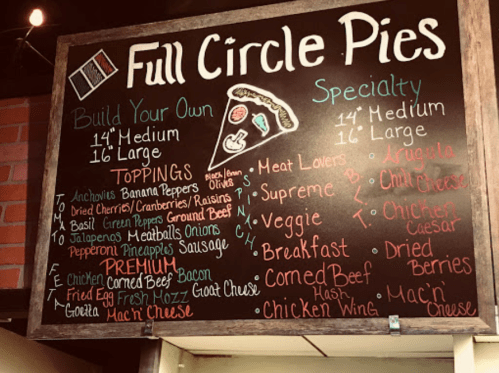 Full Circle Pies
Build Your Own
14" Medium
16" Large
Specialty
14" Medium
16" Large
TOPPINGS
Black/Green Olives
TOMATO
Anchovies Banana Peppers
Dried Cherries/Cranberries/Raisins
Basil Green Peppers Ground Beef
Jalapenos Meatballs Onions
Pepperoni Pineapples Sausage
SPINACH
PREMIUM
FETA
Chicken Corned Beef Bacon
Fried Egg Fresh Mozz Goat Cheese
Goetta Mac'n' Cheese
• Meat Lovers
• Supreme
• Veggie
• Breakfast
• Corned Beef Hash
• Chicken Wing
B.L.T.
• Arugula
• Chili Cheese
• Chicken Caesar
• Dried Berries
• Mac'n' Cheese